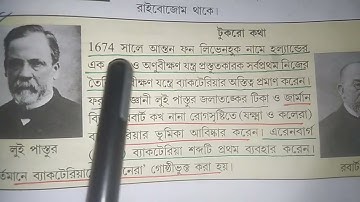 রাইবোজোম থাকে।
টুকরো কথা
1674 সালে আন্তন ফন লিভেনহুক নামে হল্যান্ডের
এক ও অণুবীক্ষণ যন্ত্র প্রস্তুতকারক সর্বপ্রথম নিজের
তৈরি বীক্ষণ যন্ত্রে ব্যাকটেরিয়ার অস্তিত্ব প্রমাণ করেন।
লুই পাস্তুর জলাতঙ্কের টিকা ও জার্মান
কখ নানা রোগসৃষ্টিতে (যক্ষ্মা ও কলেরা)
ভূমিকা আবিষ্কার করেন। এরেনবার্গ
ব্যাকটেরিয়া শব্দটি প্রথম ব্যবহার করেন।
ব্যাকটেরিয়া গোষ্ঠীভুক্ত করা হয়।
লুই পাস্তুর